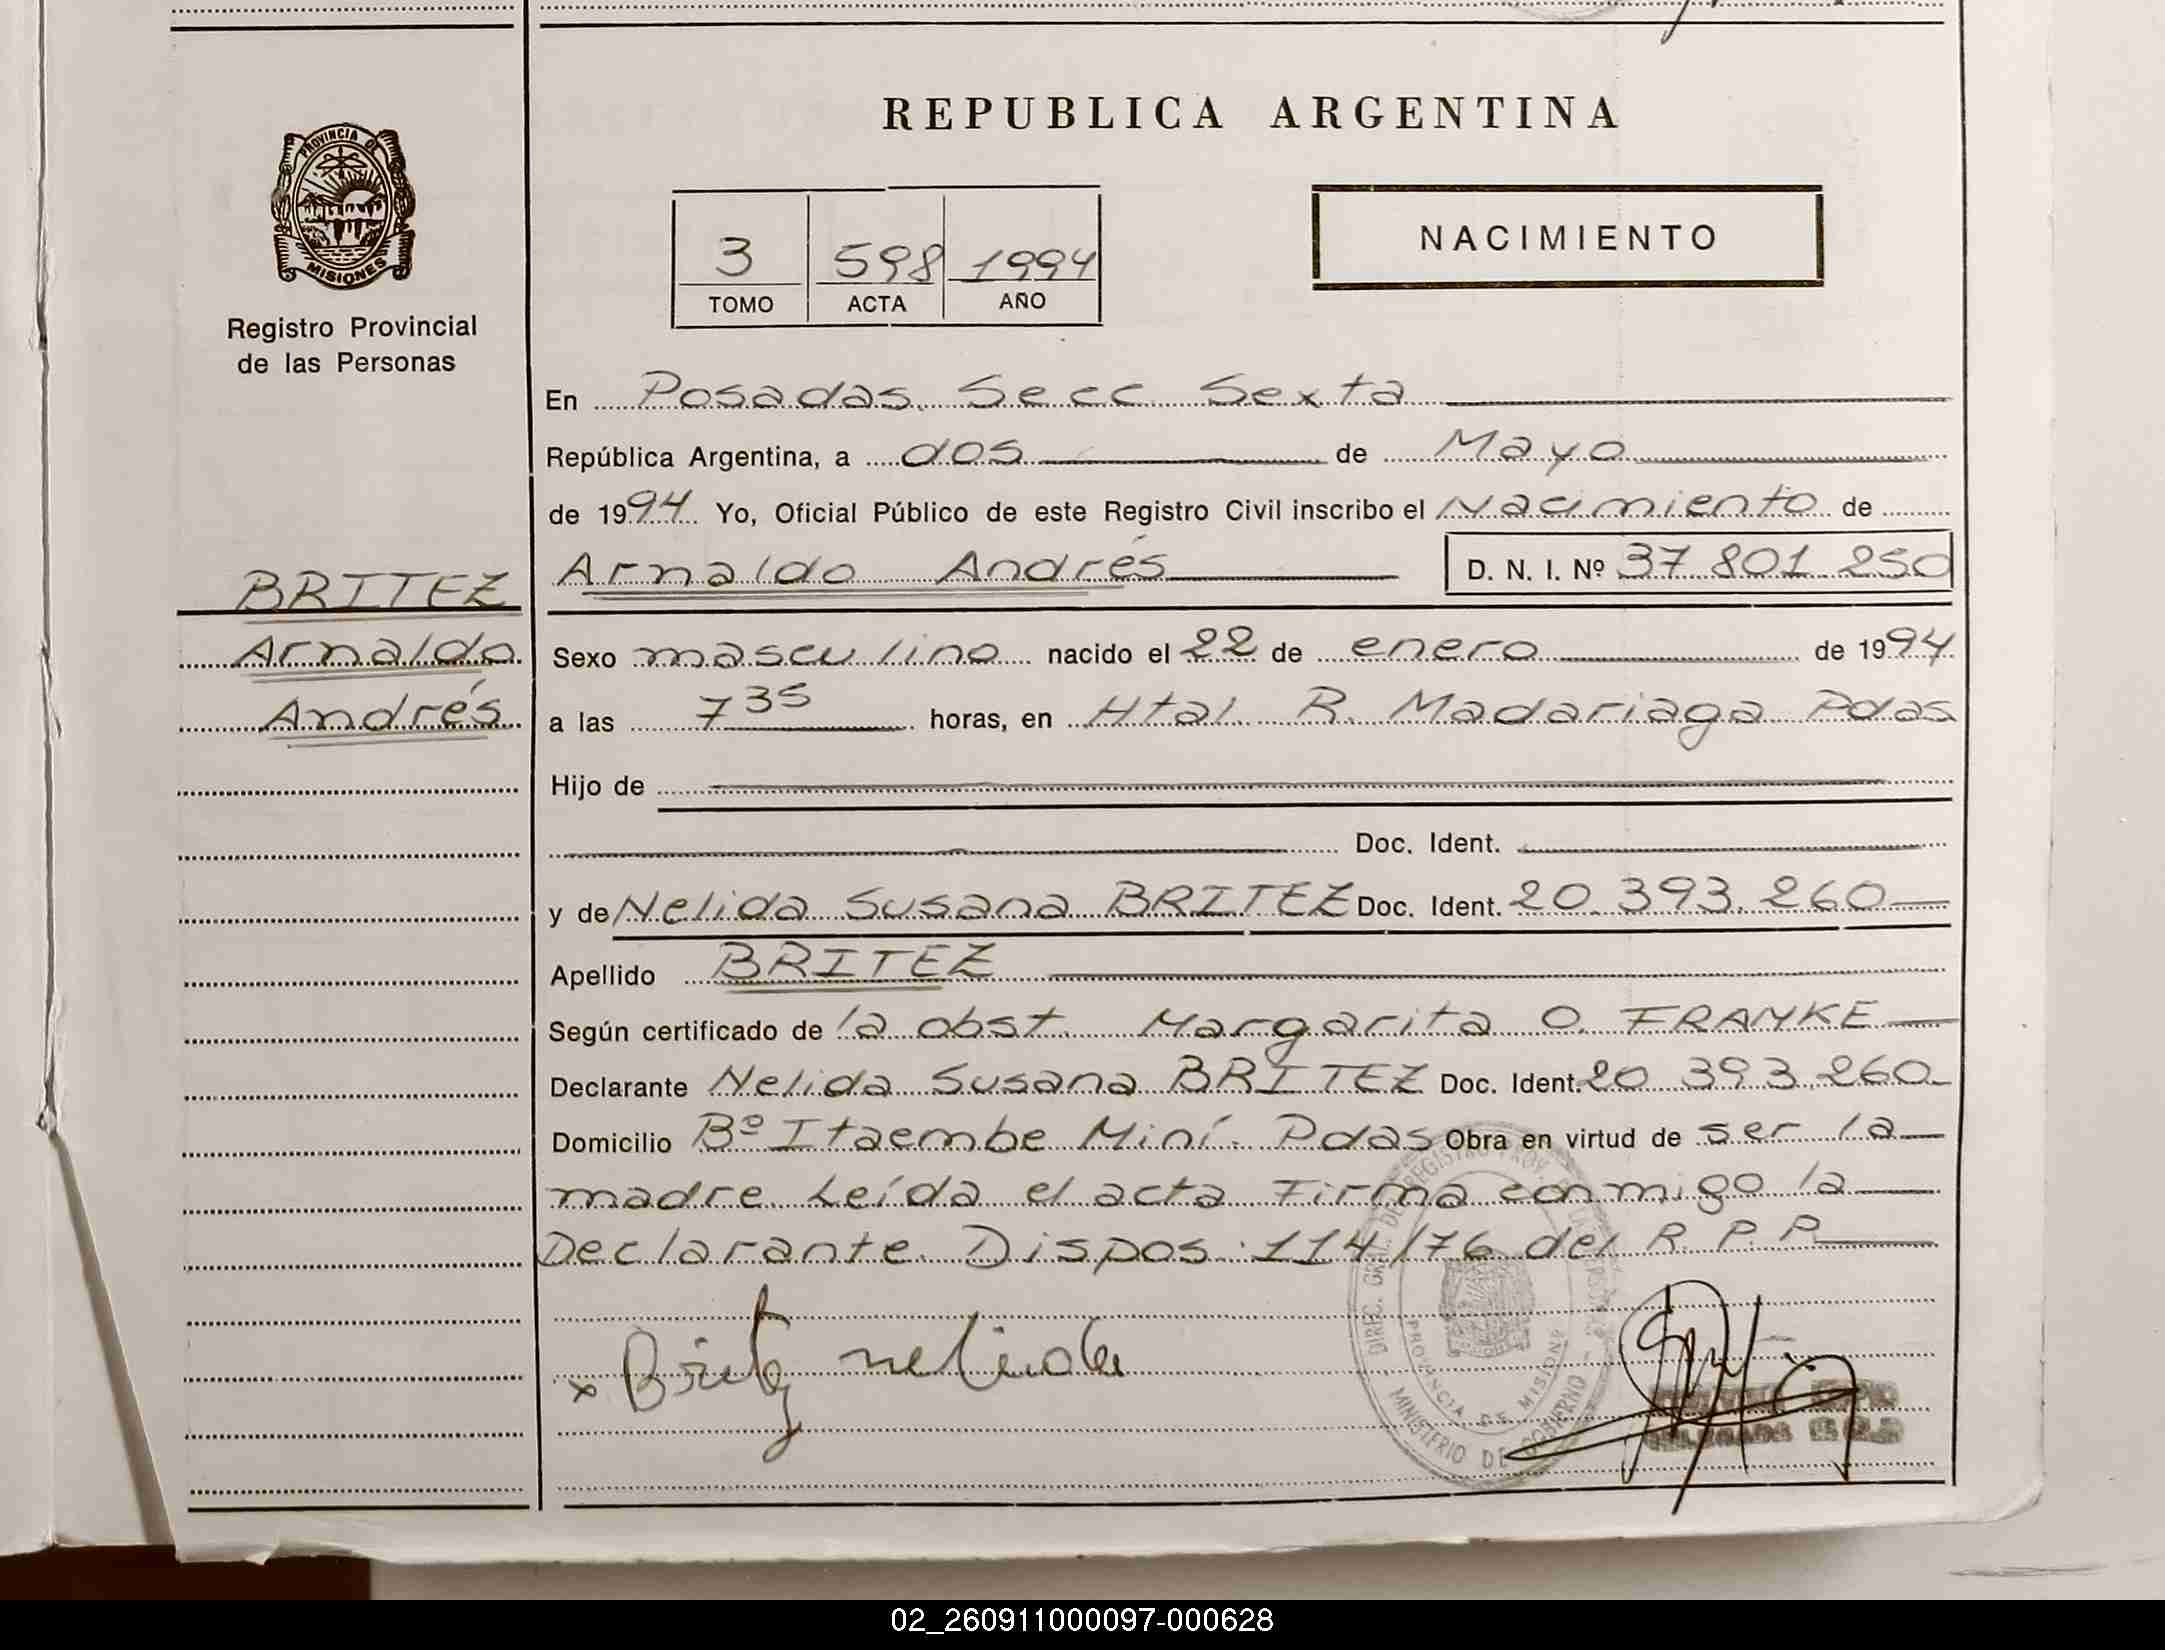 REPUBLICA ARGENTINA
PROVINCIA DE
MISIONES
Registro Provincial
de las Personas
3 598 1994
TOMO ACTA AÑO
NACIMIENTO
En Posadas Secc Sexta
República Argentina, a dos de Mayo
de 1994 Yo, Oficial Público de este Registro Civil inscribo el Nacimiento de
BRITEZ
Arnaldo
Andrés
Arnaldo Andrés D. N. I. Nº 37 801 250
Sexo masculino nacido el 22 de enero de 1994
a las 7 35 horas, en Htal. R. Madariaga Pdas
Hijo de
Doc. Ident.
y de Nelida Susana BRITEZ Doc. Ident. 20.393.260
Apellido BRITEZ
Según certificado de la obst. Margarita O. FRANKE
Declarante Nelida Susana BRITEZ Doc. Ident. 20 393.260
Domicilio Bº Itaembe Miní. Pdas Obra en virtud de ser la
madre. Leída el acta Firma conmigo la
Declarante. Dispos. 114/76 del R. P. P.
x Britez nelida
PROVINCIA DE MISIONES
MINISTERIO DE GOBIERNO
02_260911000097-000628